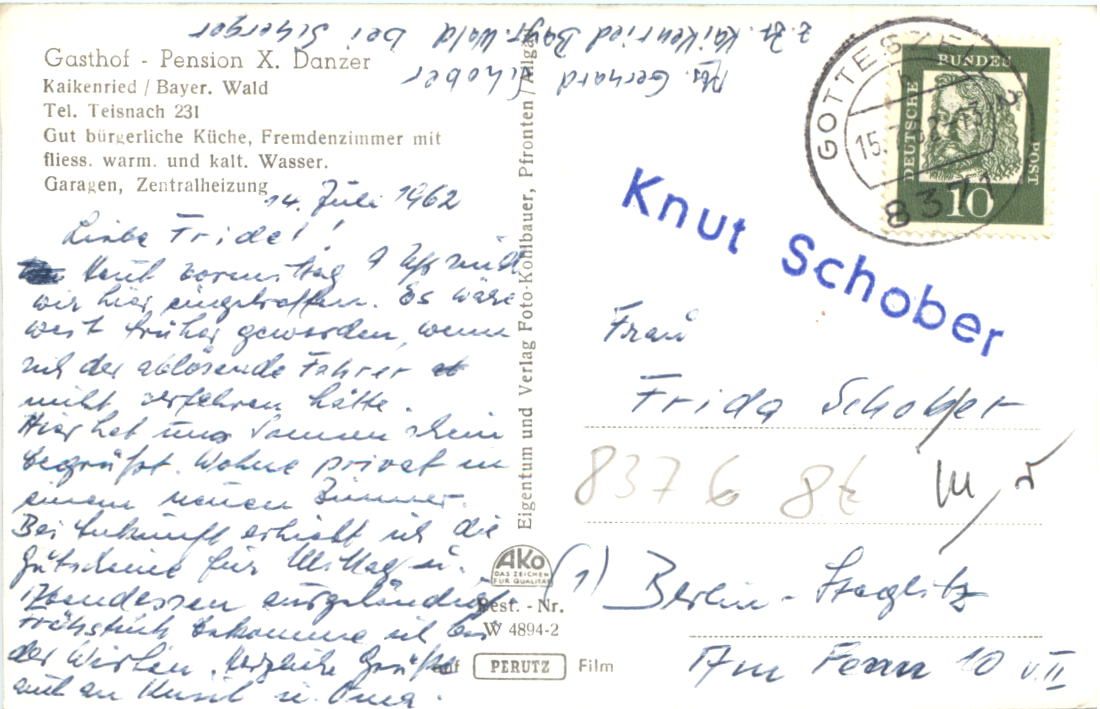 z. Zt. Kaikenried Bayr. Wald bei Scherger
Abs. Gerhard Schober
Gasthof - Pension X. Danzer
Kaikenried / Bayer. Wald
Tel. Teisnach 231
Gut bürgerliche Küche, Fremdenzimmer mit
fliess. warm. und kalt. Wasser.
Garagen, Zentralheizung
14. Juli 1962
Liebe Fridel!
Heut vormittag 9 Uhr sind
wir hier eingetroffen. Es wäre
weit früher geworden, wenn
sich der ablösende Fahrer
nicht verfahren hätte.
Hier hat uns Sonnenschein
begrüßt. Wohne privat in
einem neuen Zimmer.
Bei Ankunft erhielt ich die
Gutscheine für Mittag u.
Abendessen ausgehändigt
Frühstück bekomme ich bei
der Wirtin. Herzliche Grüße
auch an Knut u. Oma.
Eigentum und Verlag Foto-Kohlbauer, Pfronten/Allgäu
AKO
DAS ZEICHEN
FÜR QUALITÄT
Best. - Nr.
W 4894-2
auf PERUTZ Film
GOTTESZELL
15.
8371
DEUTSCHE
BUNDES
POST
10
Knut Schober
Frau
Frida Schober
8376 8t
(1) Berlin-Steglitz
Am Fenn 10 v. II